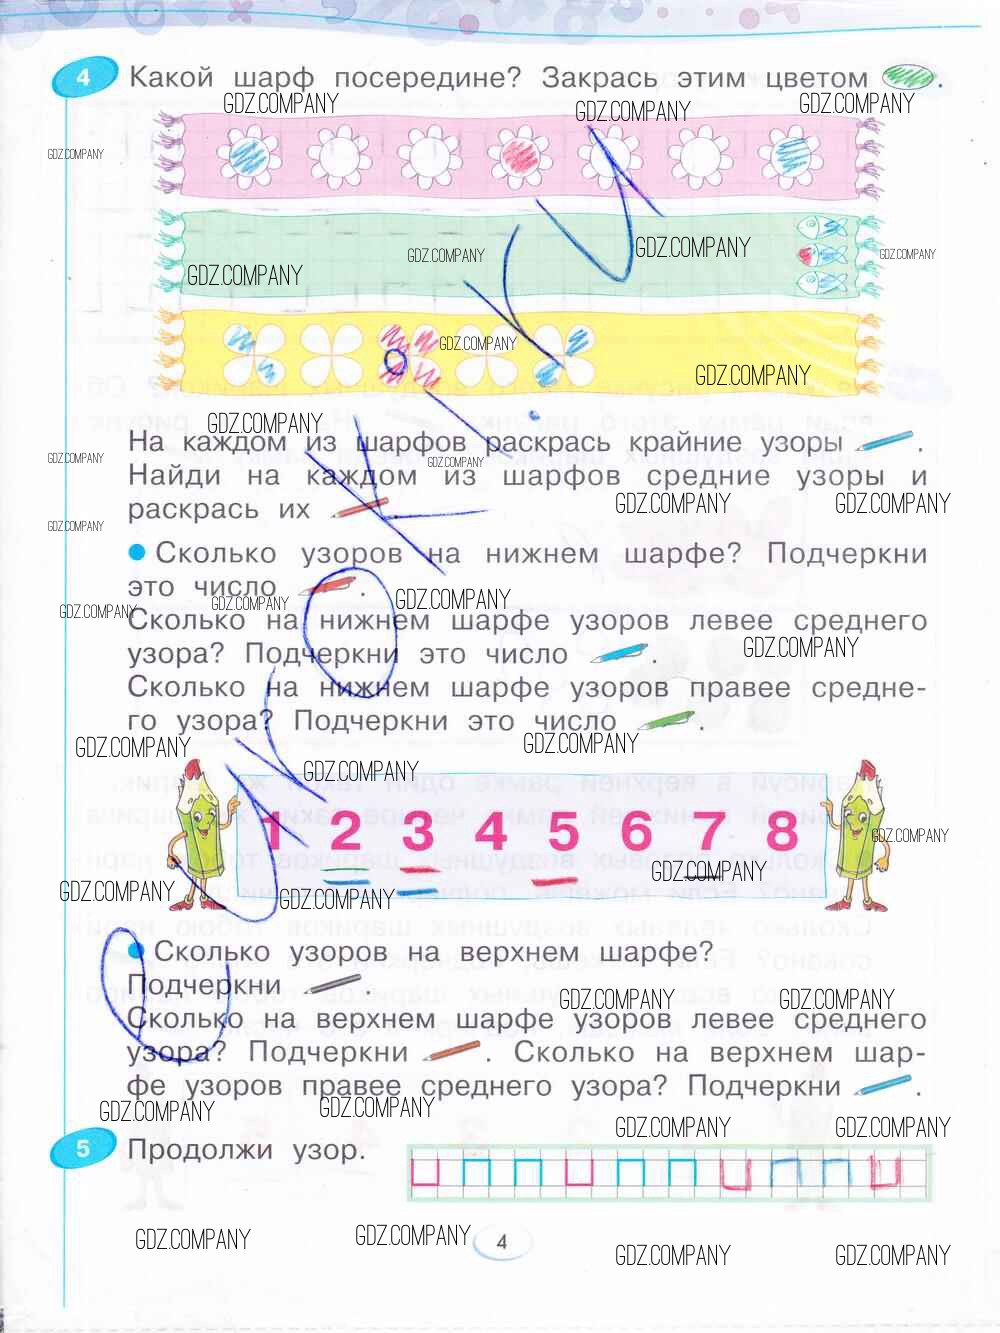 4 Какой шарф посередине? Закрась этим цветом .
GDZ.COMPANY GDZ.COMPANY GDZ.COMPANY
GDZ.COMPANY
GDZ.COMPANY GDZ.COMPANY GDZ.COMPANY GDZ.COMPANY
GDZ.COMPANY
GDZ.COMPANY
GDZ.COMPANY
На каждом из шарфов раскрась крайние узоры .
GDZ.COMPANY GDZ.COMPANY
Найди на каждом из шарфов средние узоры и
GDZ.COMPANY GDZ.COMPANY
раскрась их
GDZ.COMPANY
Сколько узоров на нижнем шарфе? Подчеркни
это число .
GDZ.COMPANY GDZ.COMPANY GDZ.COMPANY
Сколько на нижнем шарфе узоров левее среднего
узора? Подчеркни это число .
GDZ.COMPANY
Сколько на нижнем шарфе узоров правее средне-
го узора? Подчеркни это число .
GDZ.COMPANY GDZ.COMPANY
GDZ.COMPANY
1 2 3 4 5 6 7 8
GDZ.COMPANY
GDZ.COMPANY GDZ.COMPANY GDZ.COMPANY
Сколько узоров на верхнем шарфе?
Подчеркни .
GDZ.COMPANY GDZ.COMPANY
Сколько на верхнем шарфе узоров левее среднего
узора? Подчеркни . Сколько на верхнем шар-
фе узоров правее среднего узора? Подчеркни .
GDZ.COMPANY GDZ.COMPANY
GDZ.COMPANY GDZ.COMPANY
5 Продолжи узор.
GDZ.COMPANY GDZ.COMPANY
4
GDZ.COMPANY GDZ.COMPANY